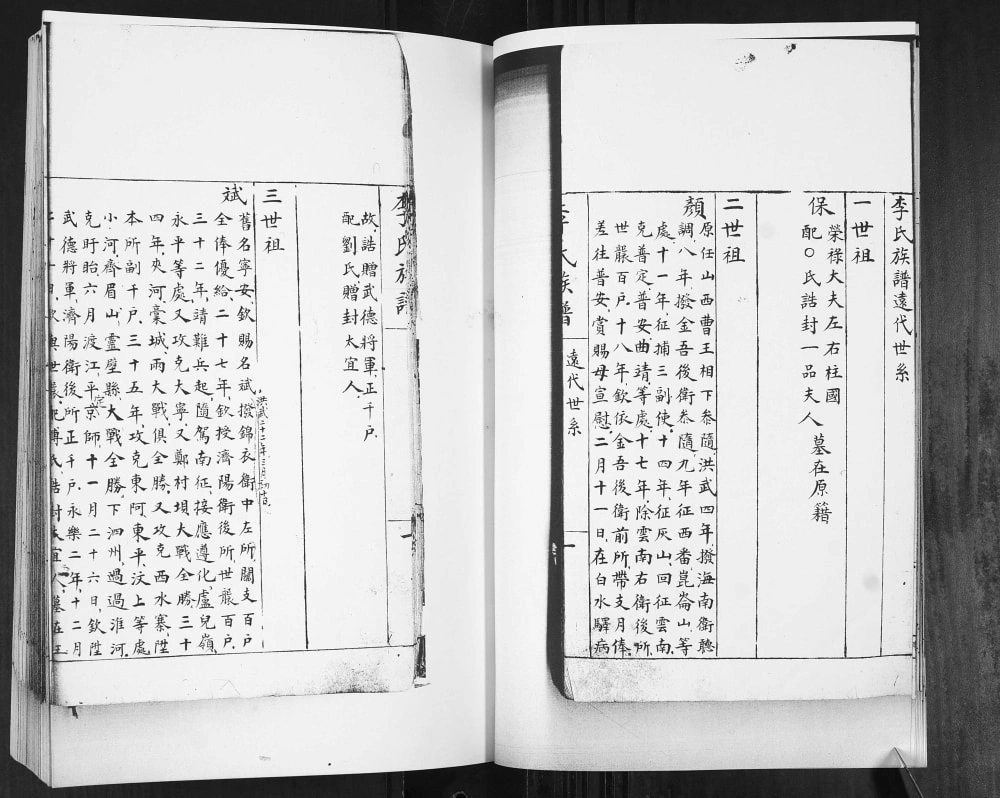 李氏族譜遠代世系
一世祖
保 榮祿大夫左右柱國
配〇氏誥封一品夫人 墓在原籍
二世祖
顏 原任山西曹王相下叅隨洪武四年撥海南衛聽
調八年撥金吾後衛叅隨九年征西番崑崙山等
處十一年征捕三副使十四年征灰山回征雲南
克普定普安曲靖等處十七年除雲南右衛後所
世襲百戶十八年欽依金吾後衛前所帶支月俸
差往普安賞賜母宣慰二月十一日在白水驛病
李氏族譜
遠代世系
一
李氏族譜
故誥贈武德將軍正千戶
配劉氏贈封太宜人
三世祖
斌 舊名寧安欽賜名斌撥錦衣衛中左所關支百戶
洪武二十二年三月初
全俸優給二十七年欽授濟陽衛後所世襲百戶
三十二年靖難兵起隨駕南征接應遵化盧兒嶺
永平等處又攻克大寧又鄭村垻大戰全勝三十
四年夾河藁城兩大戰俱全勝又攻克西水寨陞
本所副千戶三十五年攻克東阿東平汶上等處
小河齊眉山靈壁縣大戰全勝下泗州過過淮河
克盱眙六月渡江平定京師十一月二十六日欽陞
武德將軍濟陽衛後所正千戶永樂二年十二月